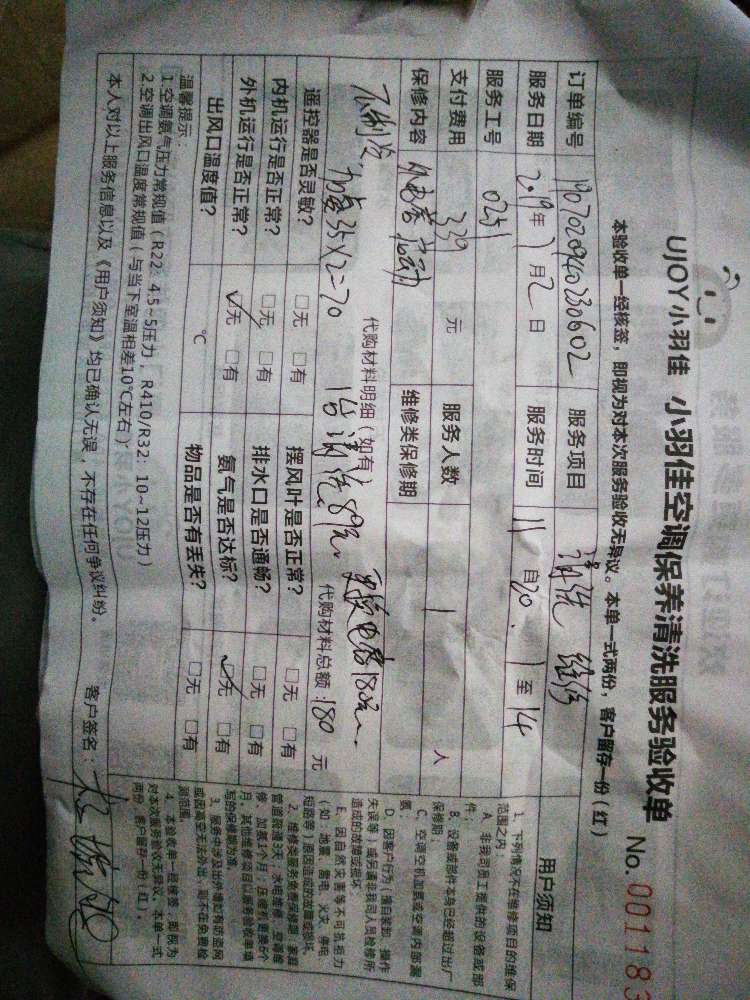 UJOY小羽佳 小羽佳空调保养清洗服务验收单 No.001183
本验收单一经核签，即视为对本次服务验收无异议。本单一式两份，客户留存一份（红）
订单编号 1907020940230602 服务项目 清洗 维修
服务日期 2019年7月2日 服务时间 11自20. 1至14
服务工号 0251
支付费用 339 元 服务人数 1 人
保修内容 维修类保修期
代购材料明细（如有）
不制冷 加氟35×2=70 1台清洗89元. 更换电容180元.
代购材料总额：180元
遥控器是否灵敏？ □无 □有 摆风叶是否正常？ □无 □有
内机运行是否正常？ □无 □有 排水口是否通畅？ □无 □有
外机运行是否正常？ □无 □有 氨气是否达标？ □无 □有
出风口温度值？ ℃ 物品是否有丢失？ □无 □有
温馨提示：
1.空调氨气压力常规值（R22：4.5~5压力，R410/R32：10~12压力）
2.空调出风口温度常规值（与当下室温相差10℃左右）
本人对以上服务信息以及《用户须知》均已确认无误，不存在任何争议纠纷。 客户签名：
用户须知
1、下列情况不在维修项目的维保
范围之内：
A、非我司员工提供的设备或部
件；
B、设备或部件本身已经超过出厂
保修期；
C、空调空机加氨或空调内部漏
氨；
D、因客户行为（擅自装卸、操作
失误等）或另请非我司人员检修所
造成的故障或损坏；
E、因自然灾害等不可抗拒力
（如：地震、雷电、火灾、停电、
短路等）原因造成的故障或损坏。
2、维修类服务免费保修期：家庭
管道疏通3天；水电维修、空调维
修、加氨1个月；压缩机更换6个
月，其他维修项目以服务验收单填
写的保修期为准。
3、服务中涉及出外墙如有防盗网
或因高空无法外出，则不在免费检
测范围。
4、本验收单一经核签，即视为
对本次服务验收无异议，本单一式
两份，客户留存一份（红）。